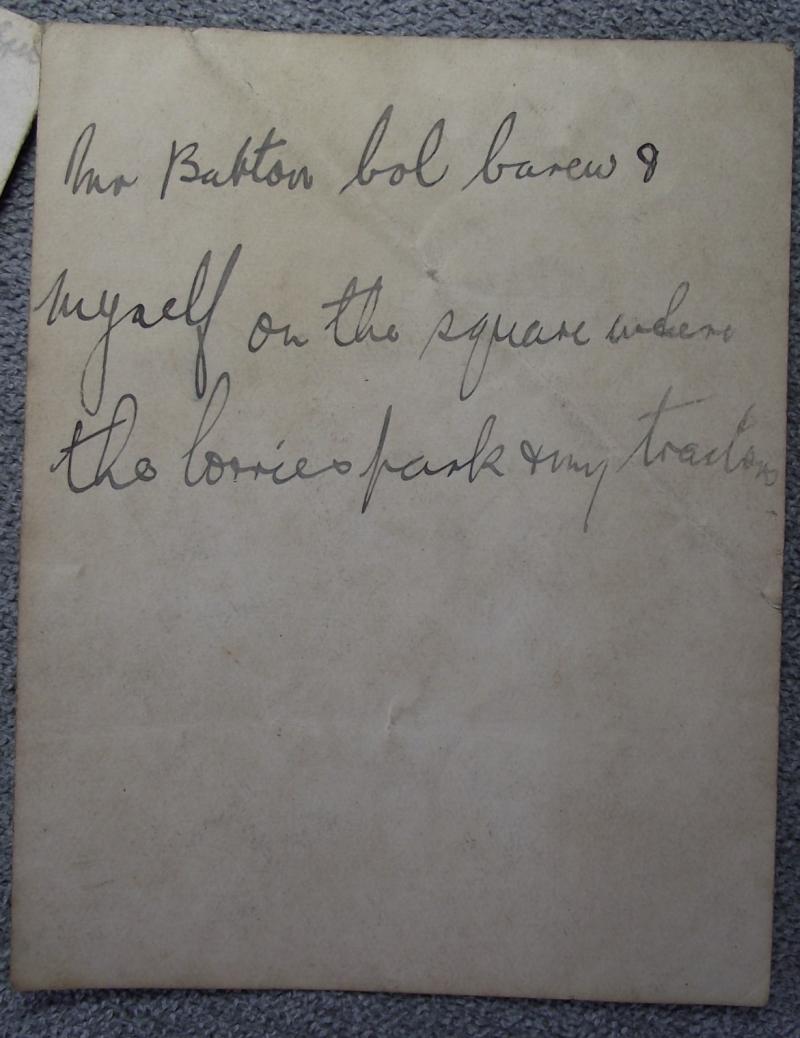 Mr Babton bol barew &
myself on the square where
the lorries park & my tractor